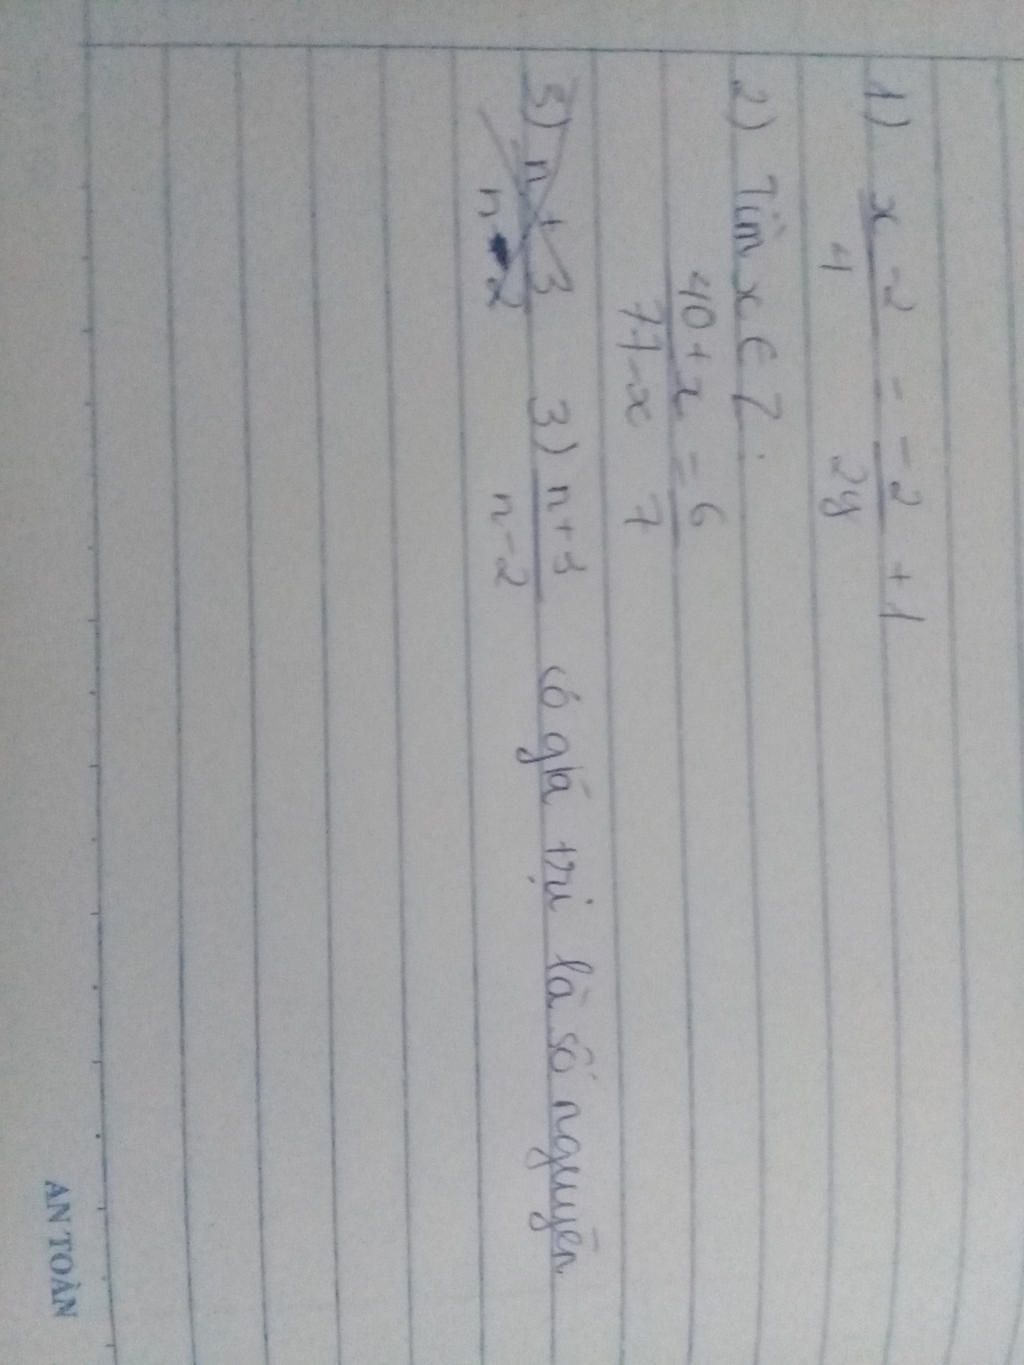 1) x-2/4 = -2/2y + 1
2) Tìm x ∈ Z :
40+x/77-x = 6/7
3) n+3/n-2 3) n+1/n-2 có giá trị là số nguyên
AN TOÀN